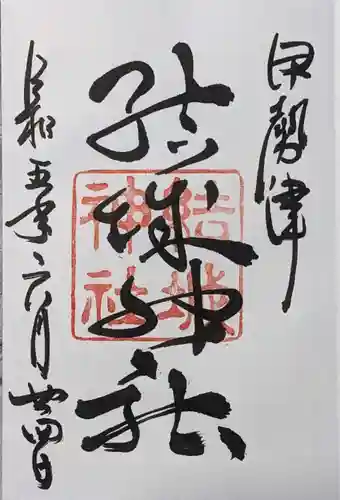 伊勢津
結城神社
結城
神社
令和五年二月廿四日